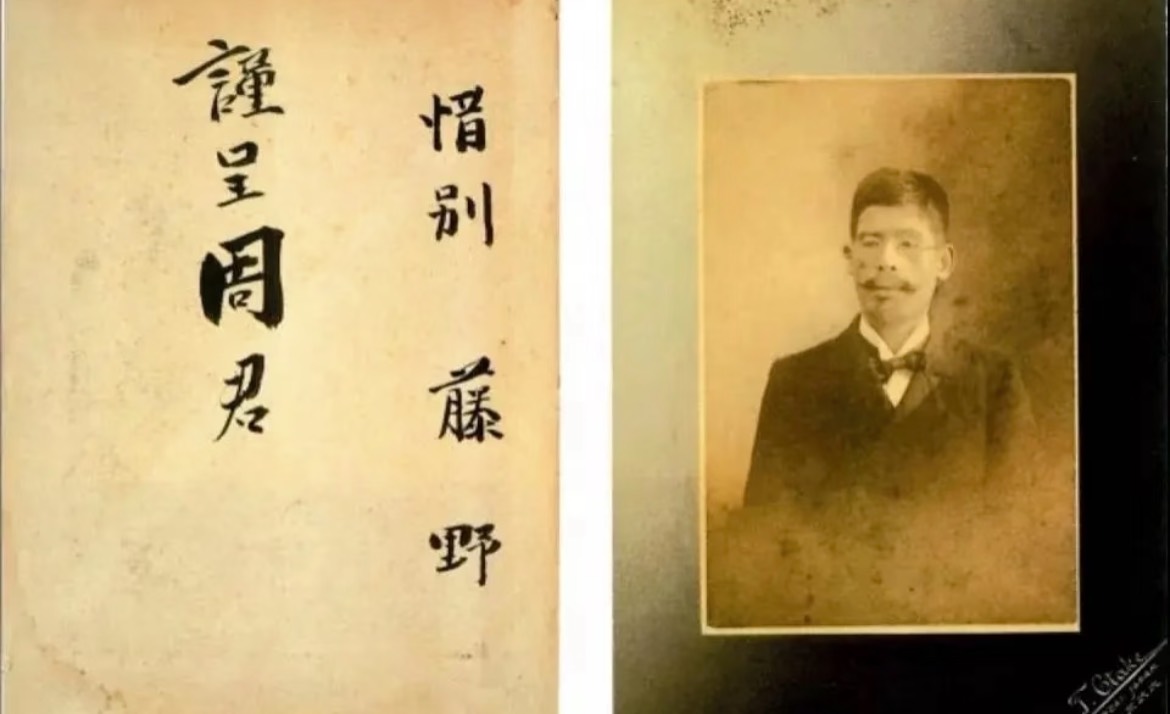 惜別 藤野
謹呈周君
T. Otake